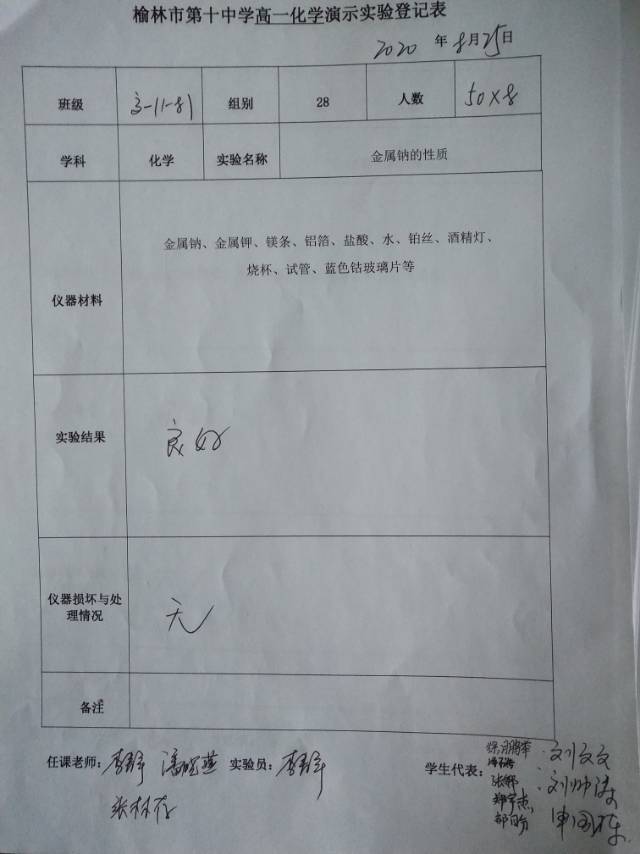 榆林市第十中学高一化学演示实验登记表
2020 年 8月25日
班级 组别 28 人数 50×8
学科 化学 实验名称 金属钠的性质
仪器材料 金属钠、金属钾、镁条、铝箔、盐酸、水、铂丝、酒精灯、
烧杯、试管、蓝色钴玻璃片等
实验结果 良好
仪器损坏与处
理情况 无
备注
任课老师: 实验员: 学生代表: 刘文文
张林存